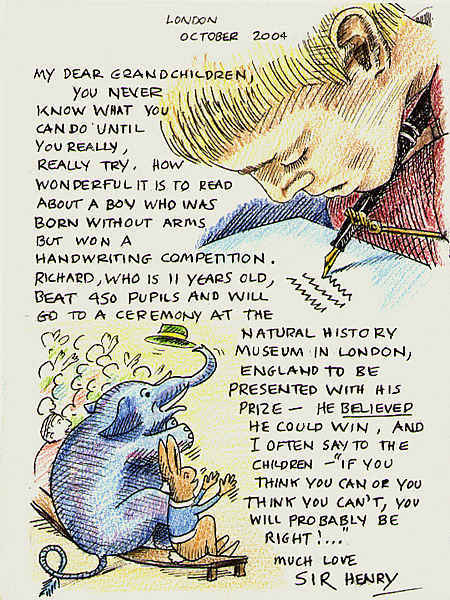 LONDON
OCTOBER 2004
MY DEAR GRANDCHILDREN,
YOU NEVER
KNOW WHAT YOU
CAN DO UNTIL
YOU REALLY,
REALLY TRY. HOW
WONDERFUL IT IS TO READ
ABOUT A BOY WHO WAS
BORN WITHOUT ARMS
BUT WON A
HANDWRITING COMPETITION.
RICHARD, WHO IS 11 YEARS OLD,
BEAT 950 PUPILS AND WILL
GO TO A CEREMONY AT THE
NATURAL HISTORY
MUSEUM IN LONDON,
ENGLAND TO BE
PRESENTED WITH HIS
PRIZE — HE BELIEVED
HE COULD WIN, AND
I OFTEN SAY TO THE
CHILDREN - "IF YOU
THINK YOU CAN OR YOU
THINK YOU CAN'T, YOU
WILL PROBABLY BE
RIGHT!..."
MUCH LOVE
SIR HENRY